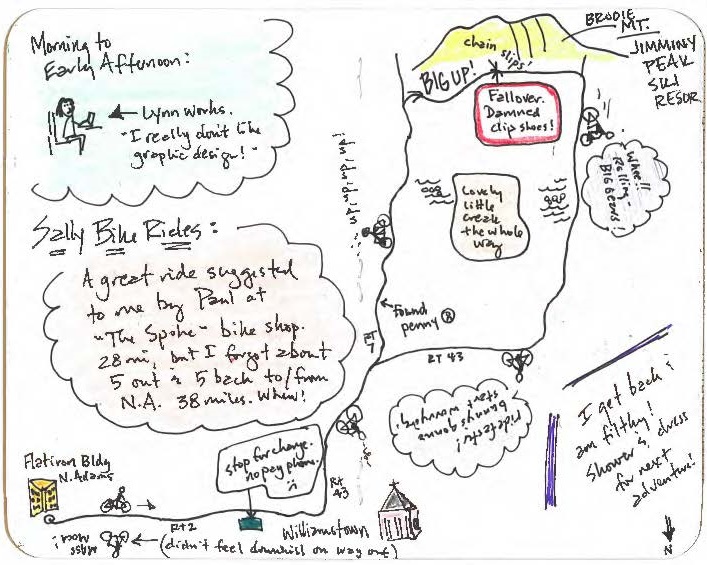 Morning to
Early Afternoon:
Lynn works.
"I really don't like
graphic design!"
Sally Bike Rides:
A great ride suggested
to me by Paul at
"The Spoke" bike shop.
28 mi, but I forgot about
5 out & 5 back to/from
N.A. 38 miles. Whew!
BRODIE
MT.
JIMMINY
PEAK
SKI
RESOR
chain slips!
BIG UP!
Fallover.
Damned
clip shoes!
Whee!!
Rolling
BIG GEARS!
up! up! up! up!
Lovely
little
creek
the whole
way
Found
penny
RT
7
RT 43
ride faster!
bunnys gonna
start worrying!
I get back &
am filthy!
Shower &, dress
for next
adventure!
stop for change.
no pay phone.
Flatiron Bldg
N. Adams
RT
43
Rt 2
Williamstown
(didn't feel downhill on way out)
N